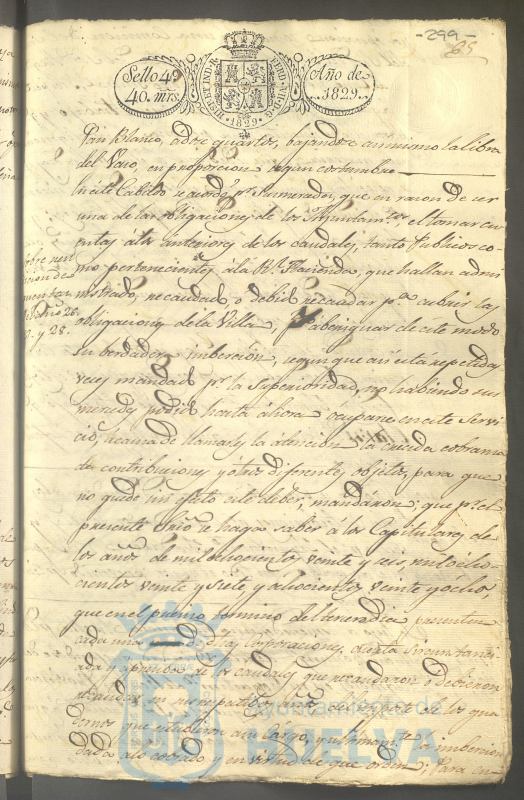 -299-
Sello 4º
40. mrs.
HISP. ET IND. R.
FERD. VII. D. G.
1829
Año de
1829.
Pan Blanco, a doce quartos, bajandose en mismo la libra
del Vazo, en proporcion segun costumbre
En este Cabildo se acordó pr. sus mercedes, que en razon de ser
una de las obligaciones de los Ayuntamtos. el tomar cu-
entas á los anteriores de los caudales, tanto Publicos co-
mo pertenecientes á la Rl. Hacienda, que hallan admi-
nistrado, recaudado, o debido recaudar pa. cubrir las
obligaciones de la Villa, y aberiguar de este modo
su berdadera imbercion, segun que asi está repetidas
veces mandado pr. la Superioridad, no habiendo sus
mercedes podido hasta ahora ocuparse en este servi-
cio, á causa de llamarles la atencion la crecida cobranza
de contribuciones y otros diferentes objetos, para que
no quede sin efecto este deber, mandáron: que pr. el
presente Srio. se haga saber á los Capitulares de
los años de mil ochocientos veinte y seis, mil ocho-
cientos veinte y siete, y ochocientos veinte y ocho
que en el termino de presenten
cada una de dhas. corporaciones, cuenta circunstanci-
ada y de los caudales que recaudaron ó debieron
recaudar en sus respectivos años,
á lo cobrado y en virtud de que orden; Para cu-
y 28.
Ayuntamiento de
HUELVA